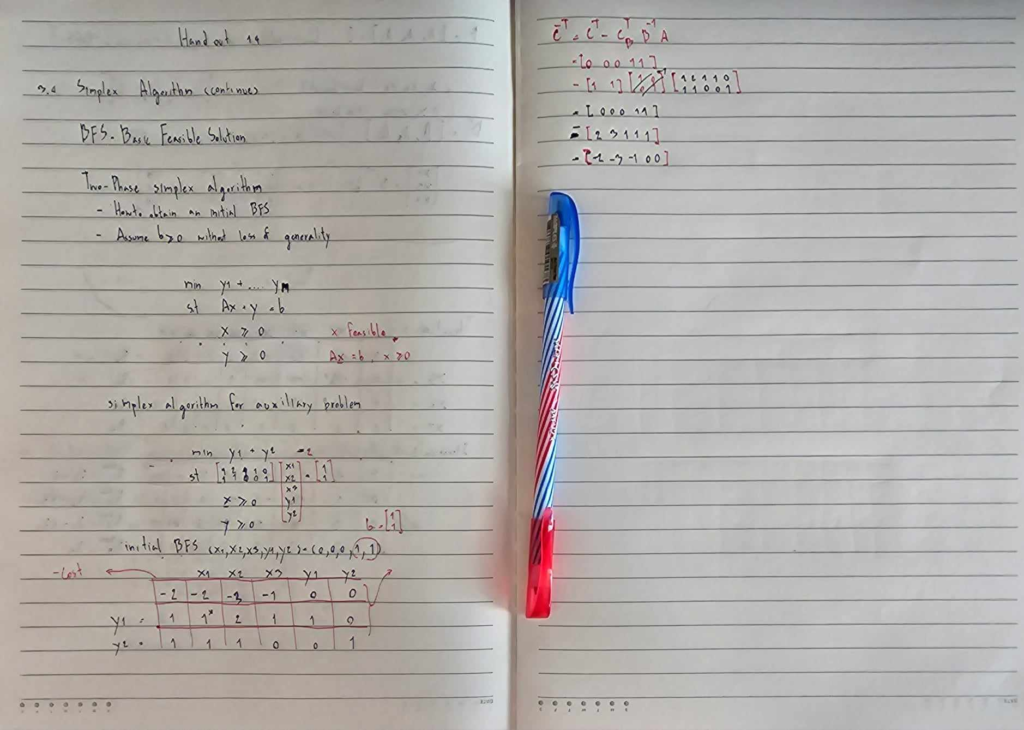 Hand out 14
3.4 Simplex Algorithm (continue)
BFS - Basic Feasible Solution
Two-Phase simplex algorithm
- How to obtain an initial BFS
- Assume b≥0 without loss of generality
min y1 + .... yn
st Ax + y = b
x ≥ 0 x feasible
y ≥ 0 Ax = b, x ≥ 0
simplex algorithm for auxiliary problem
min y1 + y2 = 2
st [1 2 1 1 0] [x1] = [1]
[1 1 0 0 1] [x2] [1]
x ≥ 0 x3
y1
y ≥ 0 y2 b = [1 1]
initial BFS (x1,x2,x3,y1,y2) = (0,0,0,1,1)
-cost x1 x2 x3 y1 y2
-2 -2 -3 -1 0 0
y1 = 1 1* 2 1 1 0
y2 = 1 1 1 0 0 1
c̄ᵀ = cᵀ - c_Bᵀ B⁻¹ A
= [0 0 0 1 1]
- [1 1] [1 0] [1 2 1 1 0]
[0 1] [1 1 0 0 1]
= [0 0 0 1 1]
- [2 3 1 1 1]
= [-2 -3 -1 0 0]